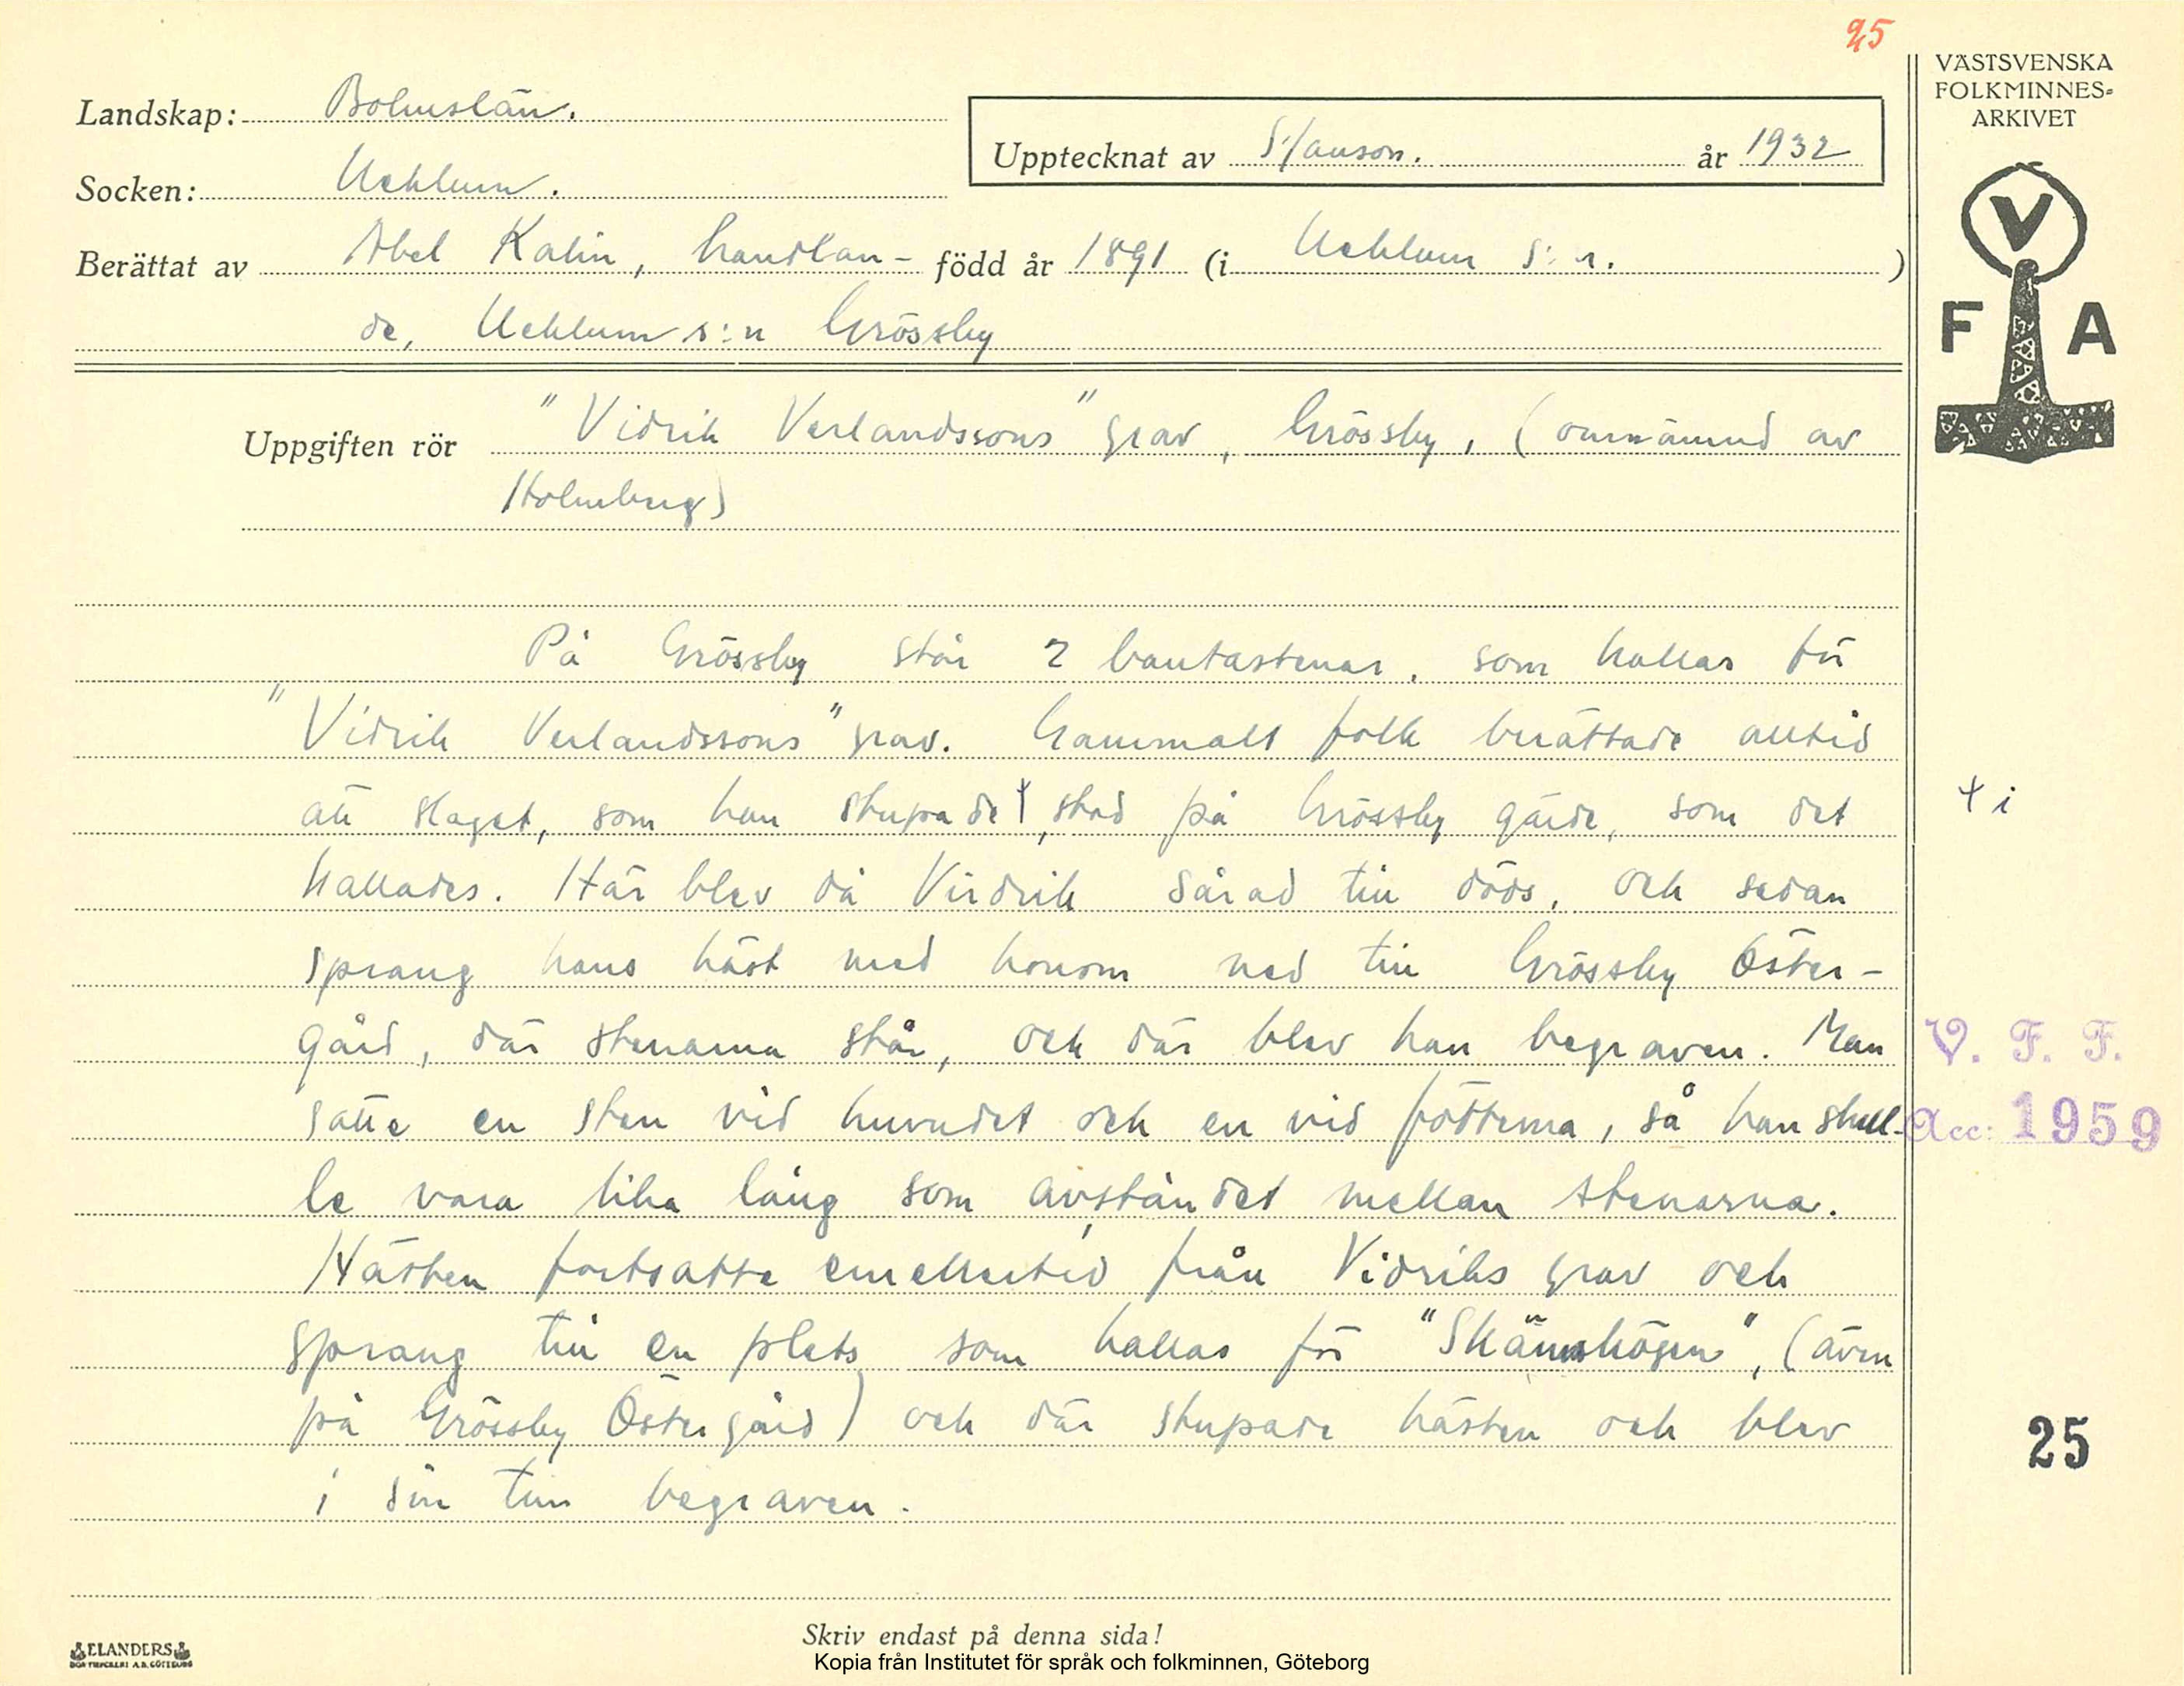 25
VÄSTSVENSKA
FOLKMINNES-
ARKIVET
Landskap: Bohuslän.
Upptecknat av S. Hanson. år 1932
Socken: Ucklum.
Berättat av Abel Kalin, handlan- född år 1891 (i Ucklum s:n. )
de, Ucklum s:n Grössby
V
F A
Uppgiften rör "Vidrik Verlandssons" grav, Grössby, (omnämnd av
Holmberg)
På Grössby står 2 bautastenar, som kallas för
"Vidrik Verlandssons" grav. Gammalt folk berättade alltid
att slaget, som han stupade ꝉ, stod på Grössby gärde, som det
ꝉ i
kallades. Här blev då Virdrik sårad till döds, och sedan
sprang hans häst med honom ned till Grössby Öster-
gård, där stenarna står, och där blev han begraven. Man
V. F. F.
satte en sten vid huvudet och en vid fötterna, så han skull-
Acc: 1959
le vara lika lång som avståndet mellan stenarna.
Hästen fortsatte emellertid från Vidriks grav och
sprang till en plats som kallas för " ", (även
på Grössby Östergård) och där stupade hästen och blev
25
i sin turn begraven.
Skriv endast på denna sida!
ELANDERS
BOKTRYCKERI A.B. GÖTEBORG
Kopia från Institutet för språk och folkminnen, Göteborg